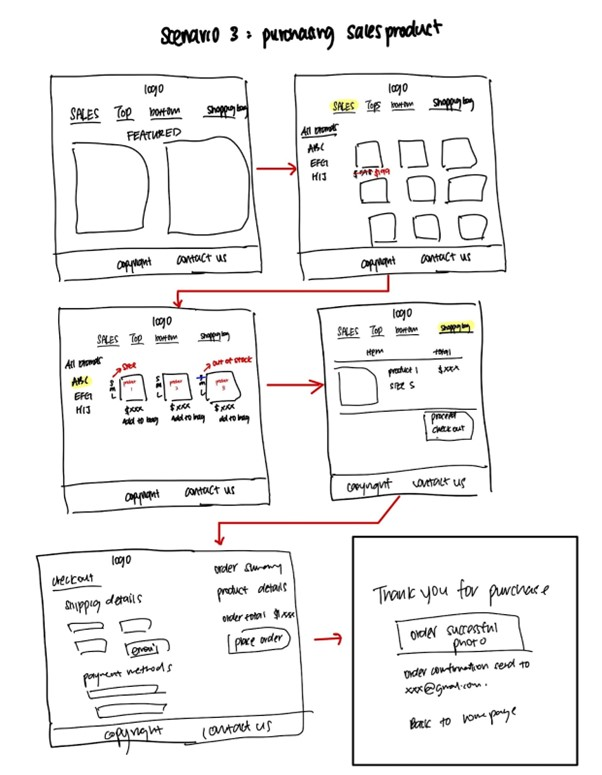 Scenario 3 : purchasing sales product
logo
SALES Top bottom Shopping bag
FEATURED
copyright contact us
logo
SALES Tops bottom Shopping bag
All brands
ABC
EFG
HIJ
$199
copyright contact us
logo
SALES Top bottom Shopping bag
All brands
ABC
EFG
HIJ
size
out of stock
S
M
L
S
M
L
S
M
L
$xxx $xxx $xxx
Add to bag Add to bag Add to bag
copyright contact us
logo
SALES Top bottom Shopping bag
item total
product 1 $xxx
size S
proceed
checkout
copyright contact us
logo
checkout
shippig details
email
payment methods
order summary
product details
order total $xxx
place order
copyright contact us
Thank you for purchase
order successful
photo
order confirmation send to
xxx@gmail.com.
Back to homepage